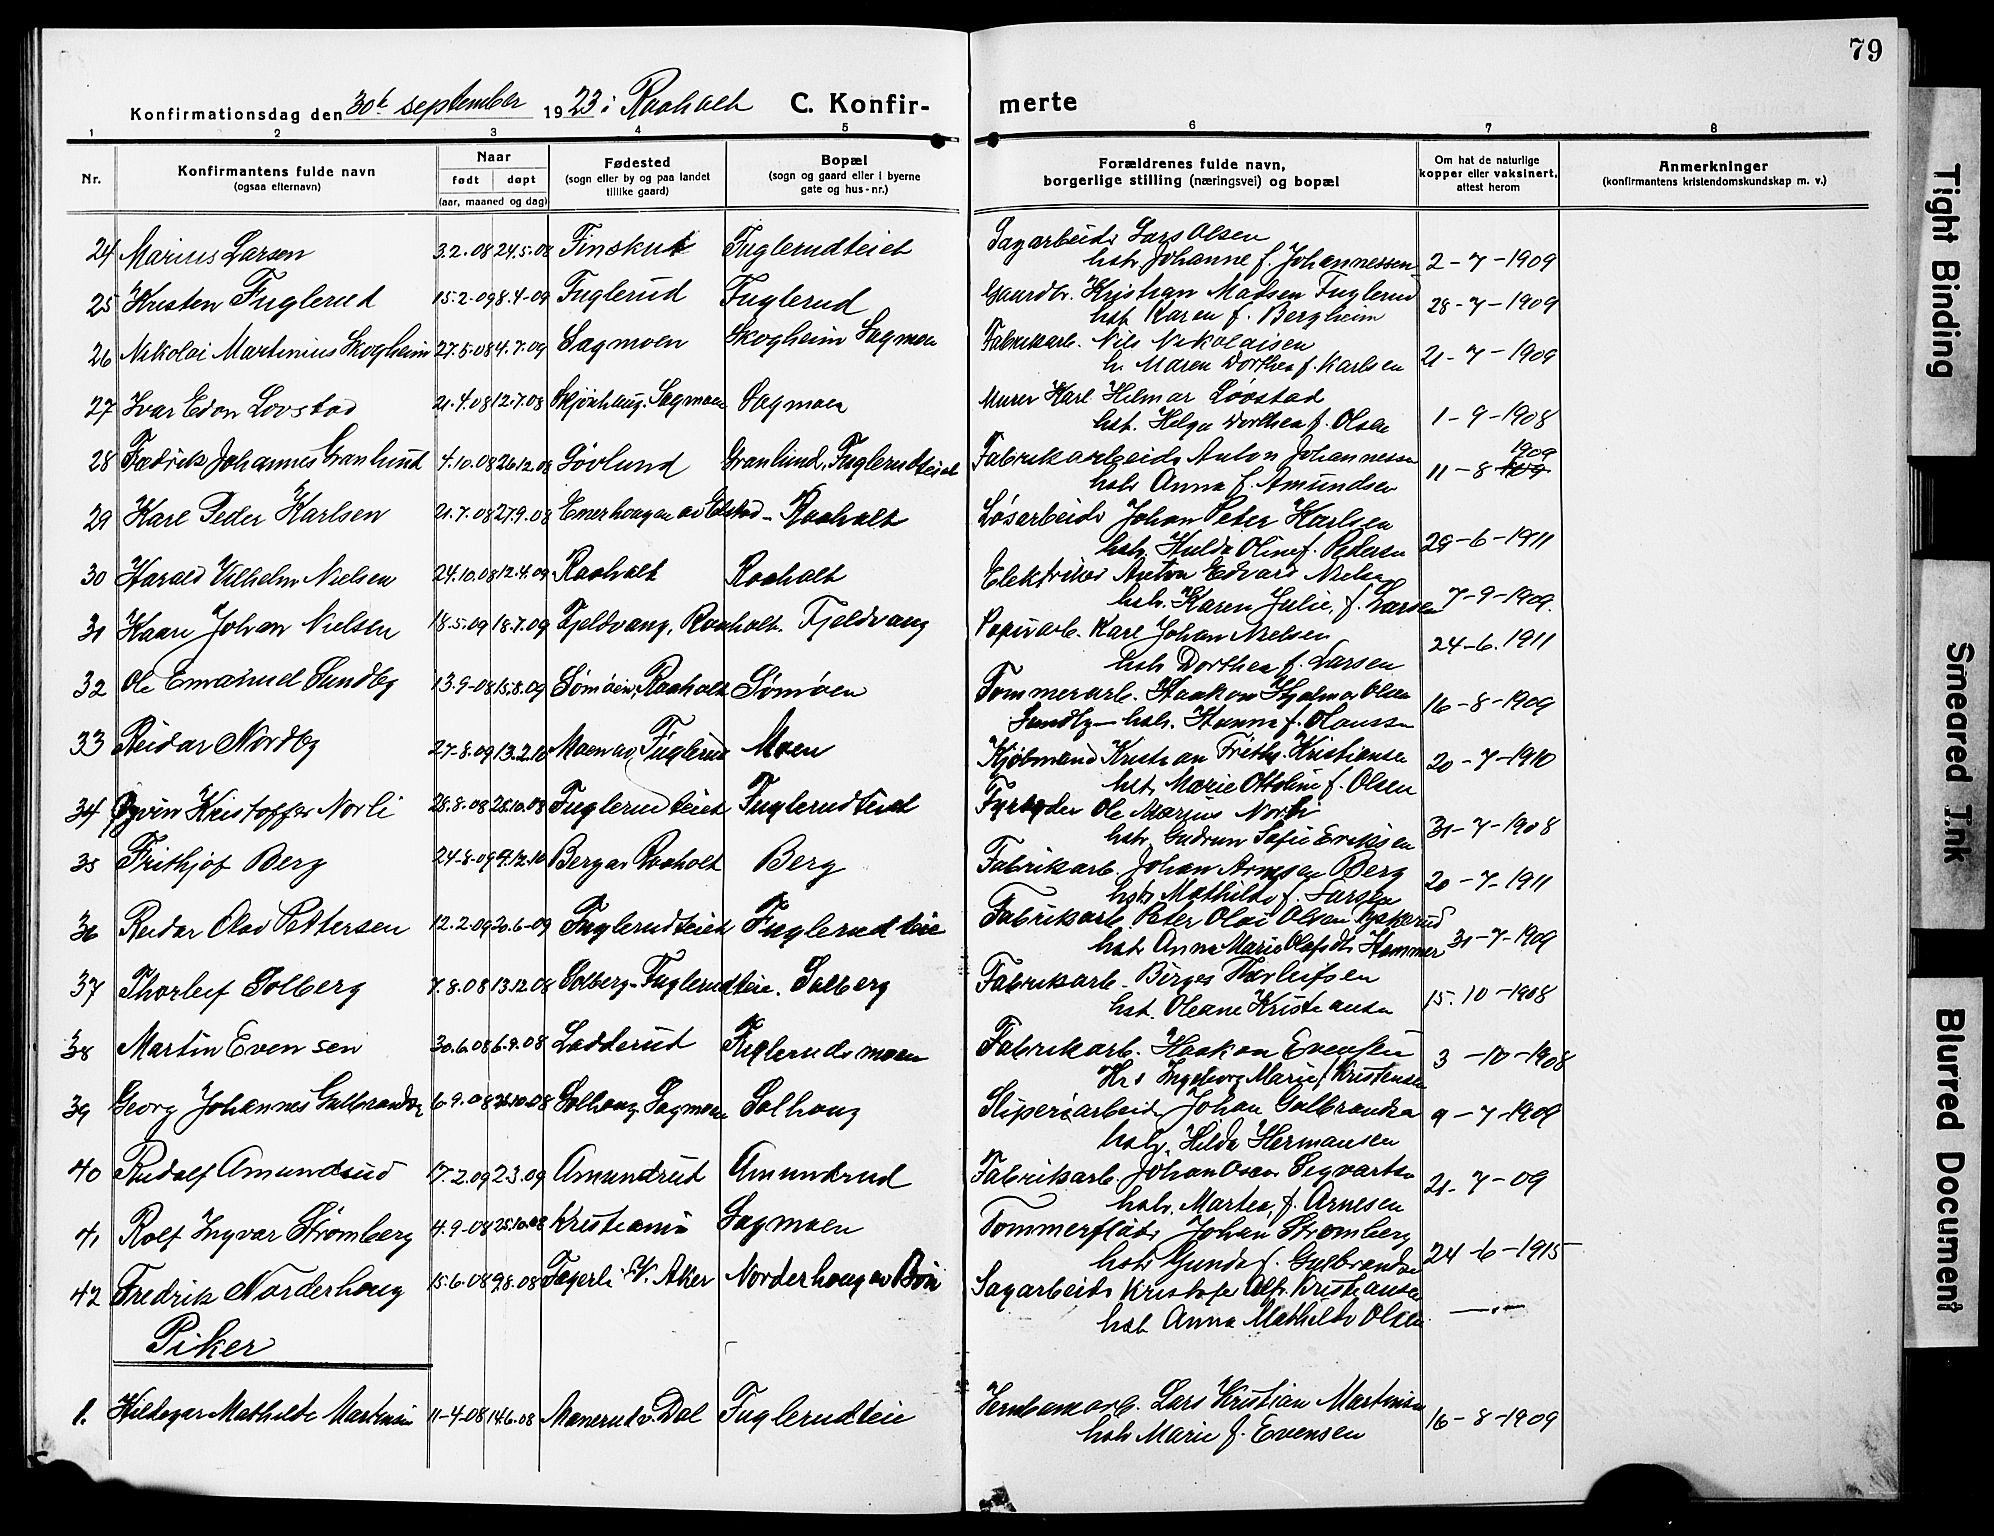 79
Konfirmationsdag den 30te september 1923 i Raaholt C. Konfirmerte
1 2 3 4 5 6 7 8
Nr.
Konfirmantens fulde navn
(ogsaa efternavn)
Naar
født døpt
(aar, maaned og dag)
Fødested
(sogn eller by og paa landet
tillike gaard)
Bopæl
(sogn og gaard eller i byerne
gate og hus-nr.)
Forældrenes fulde navn,
borgerlige stilling (næringsvei) og bopæl
Om hat de naturlige
kopper eller vaksinert,
attest herom
Anmerkninger
(konfirmantens kristendomskundskap m. v.)
24 Marius Larsen 3.2.08 24.5.08 Finskut Fuglerudteiet Sagarbeids Lars Olsen
hstr Johanne f. Johannessen 2-7-1909
25 Kristen Fuglerud 15.2.09 8.4-09 Fuglerud Fuglerud Gaardbr. Kristian Madsen Fuglerud
hst. Karen f. Bergheim 28-7-1909
26 Nikolai Martinius Skogheim 27.5.08 4.7.09 Sagmoen Skogheim Sagmoen Fabrikarb. Nils Nikolaisen
h. Maren Dorthea f. Karlsen 21-7-1909
27 Ivar Edon Lovstad 21.4.08 12.7.08 Skjönhaug. Sagmoen Sagmoen Murer Karl Hilmar Lövstad
hst. Helga Dorthea f. Olsen 1-9-1908
28 Fredrik Johannes Granlund 4.10.08 26.12.08 Lövlund Granlund, Fuglerudteiet Fabrikarbeids Anton Johannessen
hstr Anna f. Amundsen 11-8 1909
29 Karl Peder Karlsen 21.7.08 27.9.08 Enerhaugen av Edstad - Raaholt Løsarbeids Johan Peter Karlsen
hstr. Hulda Oline f. Pedersen 29-6-1911
30 Harald Vilhelm Nielsen 24.10.08 12.4.09 Raaholt Raaholt Elektriker Anton Edvard Nielsen
hstr. Karen Julie, f. Larsen 7-9-1909.
31 Kaare Johan Nielsen 18.5.09 18.7.09 Fjeldvang, Raaholt. Fjeldvang Papirarb. Karl Johan Nielsen
hstr Dorthea f. Larsen 24-6.1911
32 Ole Emanuel Sundby 13.9-08 15.8.09 Sømoen, Raaholt Sømoen Tommerarb. Haakon Hjalmar Olsen
Sundby - hstr. Hanna f. Olaussen 16-8-1909
33 Reidar Nordby 27.8.09 13.2.10 Moen av Fuglerud Moen Kjöbmand Kristian Friths. Kristiansen
hstr Marie Ottoline f. Olsen 20-7-1910
34 Øyvin Kristoffer Norli 28.8.08 28.10.08 Fuglerudteiet Fuglerudteiet Fyrbøder Ole Marius Norli
hstr Gudrun Sofie Eriksen 31-7-1908
35 Frithjof Berg 24-8-09 9.12.10 Berg av Raaholt Berg Fabrikarb. Johan Arnesen Berg
hstr Mathilde f. Larsen 20-7-1911
36 Reidar Olav Pettersen 12.2.09 20.6-09 Fuglerudteiet Fuglerudteie Fabrikarb. Peter Olai Olsen
hstr Anna Marie Olafsdtr Hammer 31-7-1909
37 Thorleif Solberg 7.8.08 13.12.08 Solberg-Fuglerudteie. Solberg Fabrikarb. Birger Thorleifsen
hst. Oleane Kristiansen 15.10-1908
38 Martin Evensen 30.6.08 6.9.08 Ladderud Fuglerudsmoen Fabrikarb. Haakon Evensen
Hr. Ingeborg Marie f Kristensen 3-10-1908
39 Georg Johannes Gulbrandsen 6.9.08 25.10.08 Solhaug, Sagmoen Solhaug Sliperiarbeid Johan Gulbrandsen
hstr. Hilda Hermansen 9-7-1909
40 Rudolf Amundsrud 17.2.09 2.3.09 Amundrud Amundrud Fabrikarb. Johan Oscar Segvartsen
hstr. Martea, f. Arnesen 21-7-09
41 Rolf Ingvar Strömberg 4.9-08 25.10.08 Kristiania Sagmoen Tommerfløter Johan Stromberg
hstr Gunda f. Gulbrandsen 24-6-1915
42 Fredrik Norderhaug 15.6.08 9.8.08 Fagerli V. Aker Norderhaug av Bøn Sagarbeids Kristofer Alfr. Kristiansen
hst Anna Mathilde Olsen —„—
Piker
1. Hildegar Mathilde Martinsen 11-4-08 14.6.08 Manerud v. Dal Fuglerudteie Jernbanearb. Lars Kristian Martinsen
hstr Marie f. Evensen 16-8-1909
Tight Binding
Smeared Ink
Blurred Document